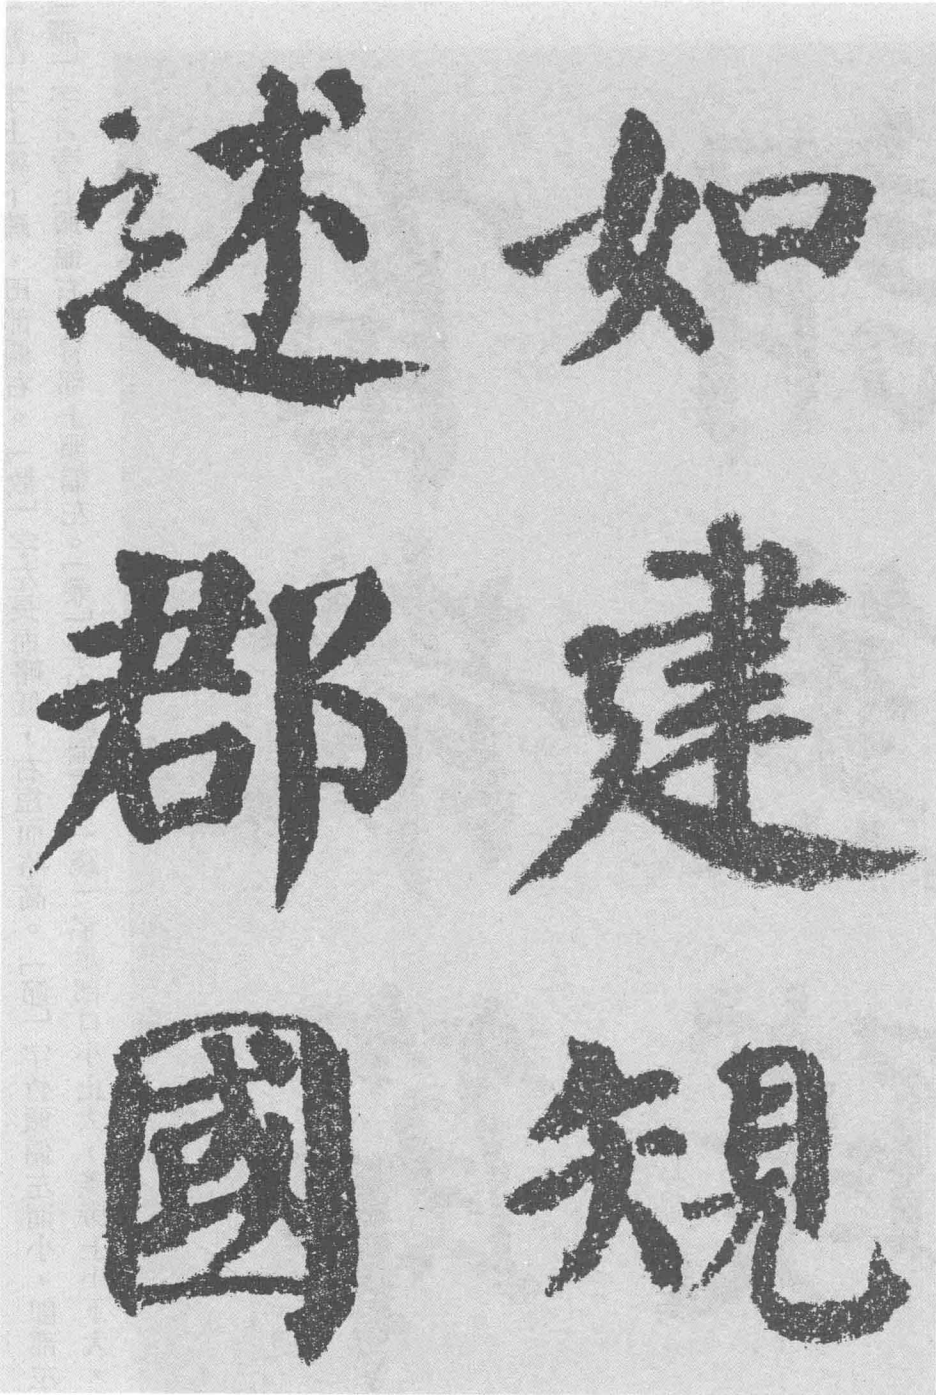 如建規
述郡國